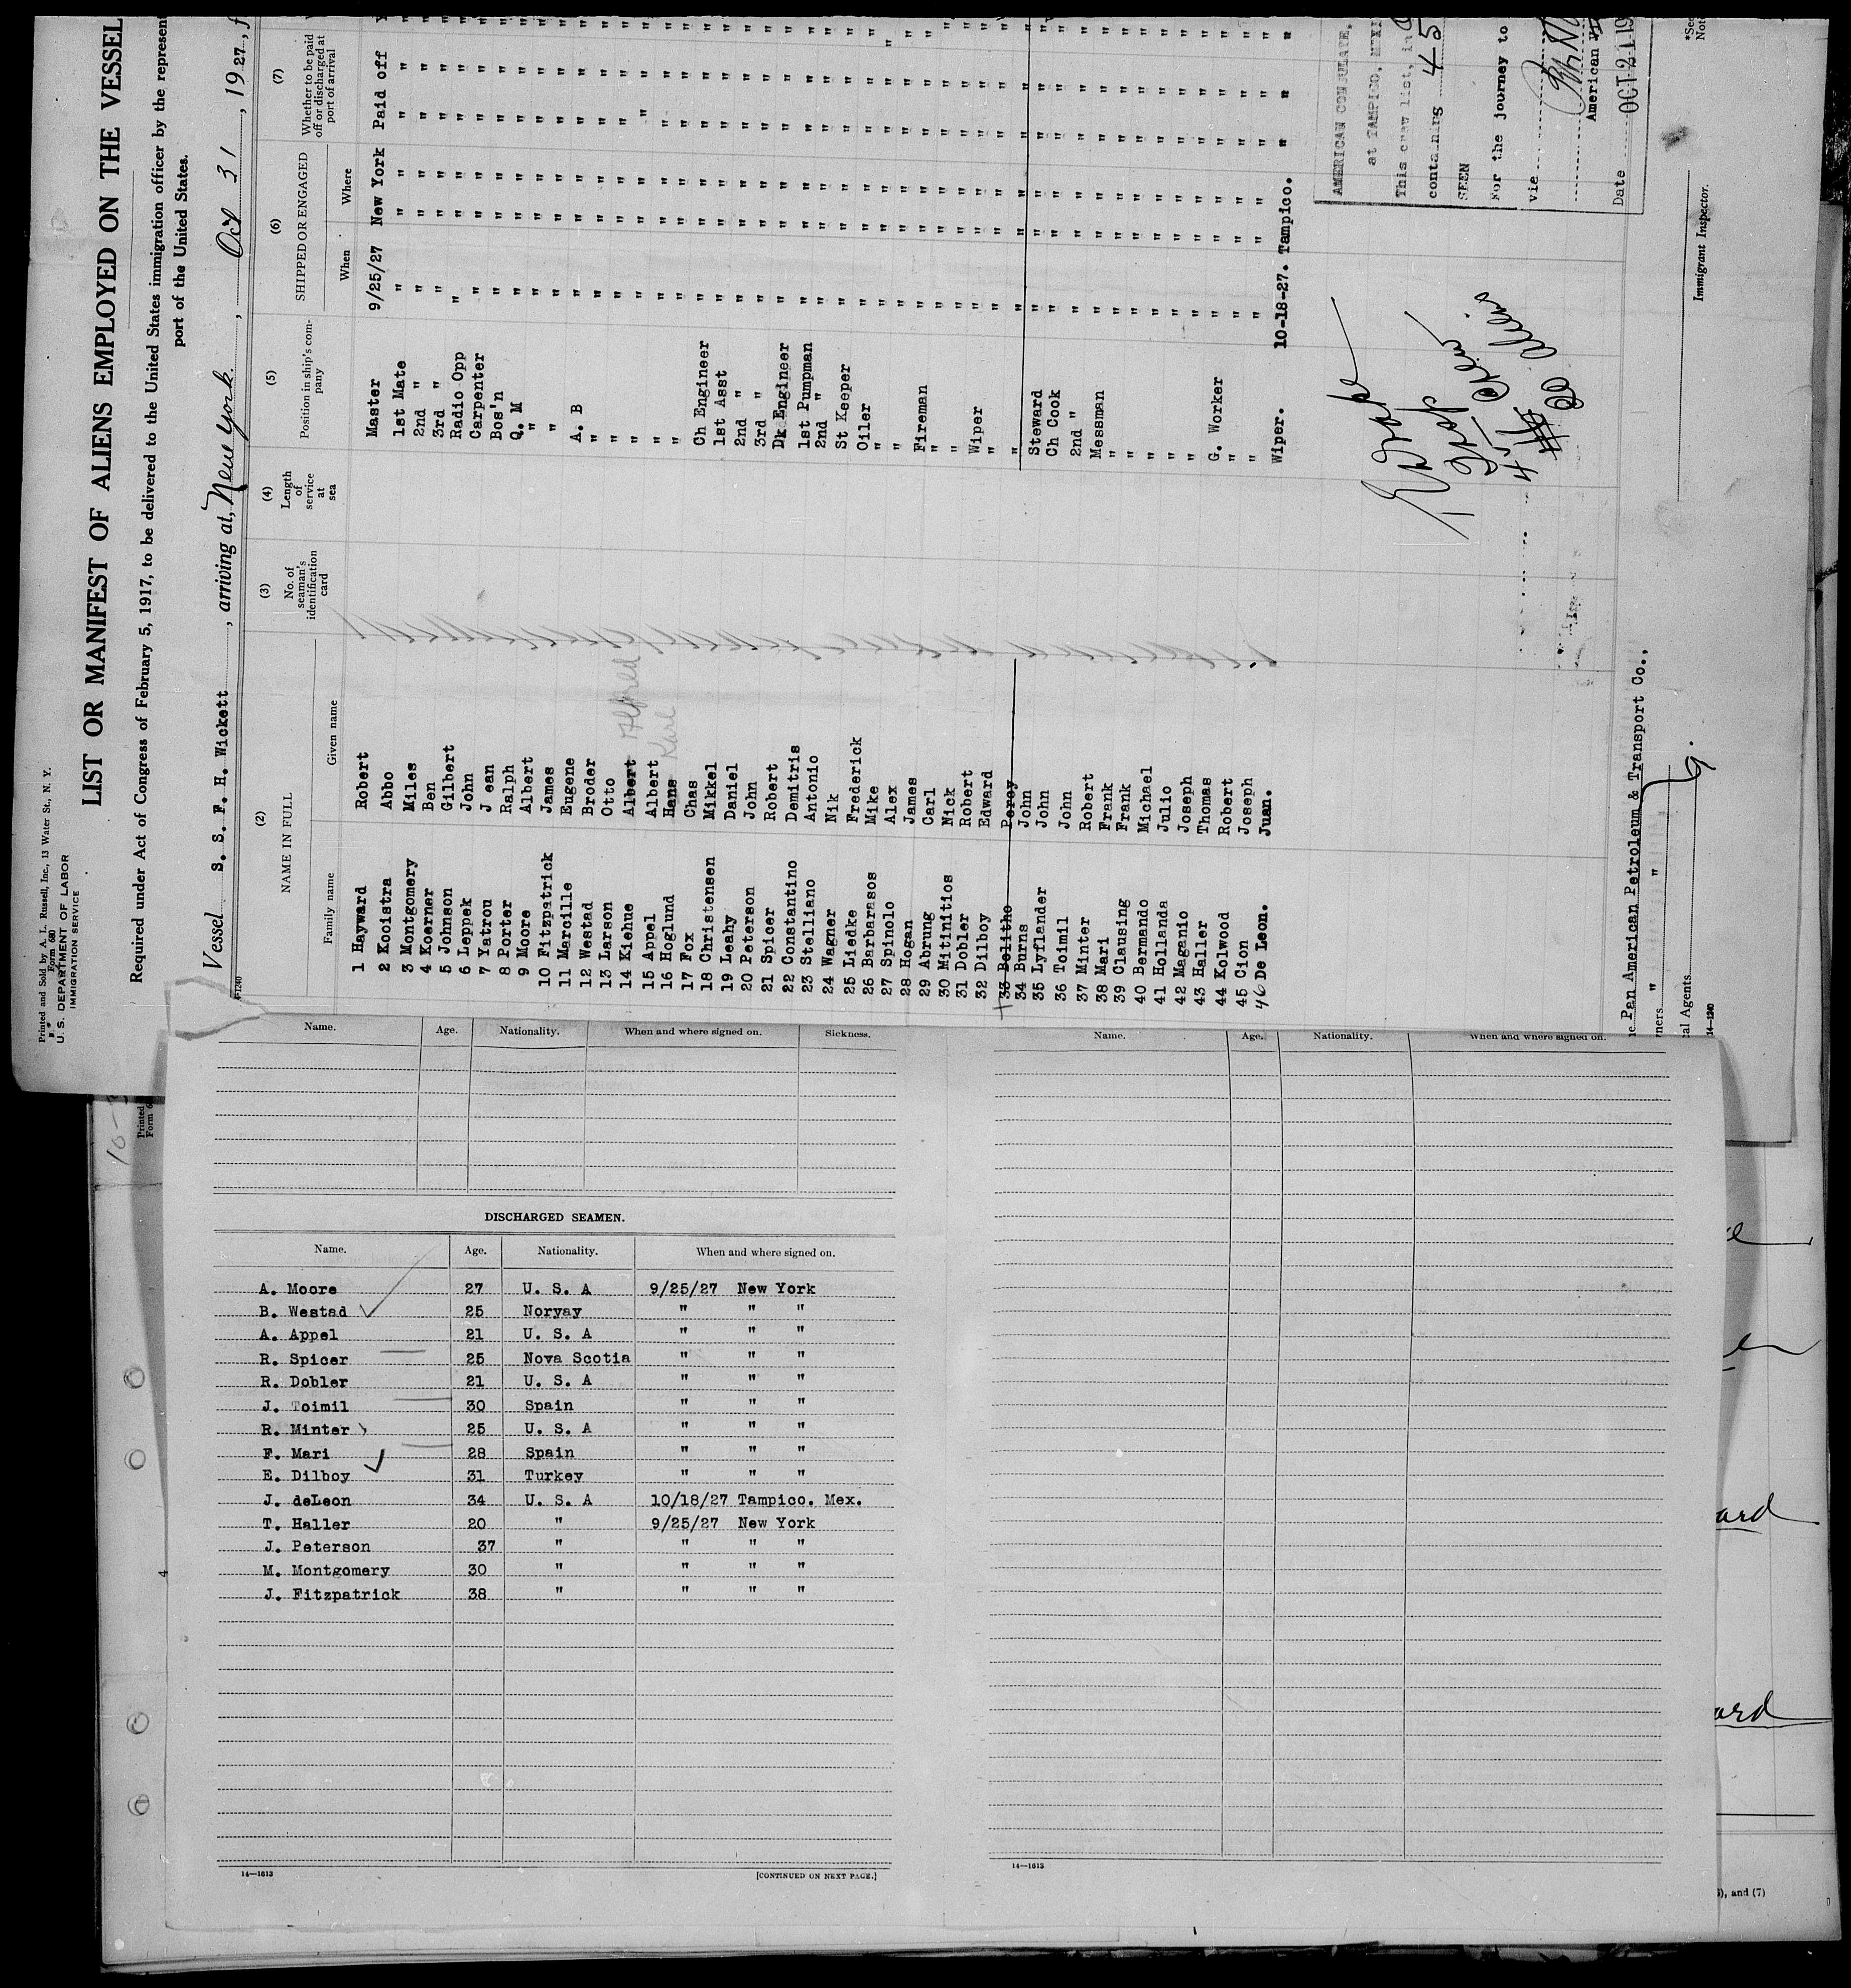 Printed and Sold by A. L. Russell, Inc., 13 Water St., N. Y.
Form 680
U. S. DEPARTMENT OF LABOR
IMMIGRATION SERVICE
LIST OR MANIFEST OF ALIENS EMPLOYED ON THE VESSEL
Required under Act of Congress of February 5, 1917, to be delivered to the United States immigration officer by the represent
port of the United States.
Vessel S. S. F. H. Wickett, arriving at, New York., Oct 31, 1927, f
(2) (3) (4) (5) (6) (7)
NAME IN FULL No. of seaman's identification card Length of service at sea Position in ship's company SHIPPED OR ENGAGED Whether to be paid off or discharged at port of arrival
Family name Given name When Where
1 Hayward Robert Master 9/25/27 New York Paid off
2 Kooistra Abbo 1st Mate " " " " "
3 Montgomery Miles 2nd " " " " " "
4 Koerner Ben 3rd " " " " " "
5 Johnson Gilbert Radio Opp " " " " "
6 Leppek John Carpenter " " " " "
7 Yatrou Jean Bos'n " " " " "
8 Porter Ralph Q. M " " " " "
9 Moore Albert " " " " " "
10 Fitzpatrick James " " " " " "
11 Marcille Eugene A. B " " " " "
12 Westad Broder " " " " " "
13 Larson Otto " " " " " "
14 Kiehue Albert Alfred " " " " " "
15 Appel Albert " " " " " "
16 Hoglund Hans Karl " " " " " "
17 Fox Chas Ch Engineer " " " " "
18 Christensen Mikkel 1st Asst " " " " "
19 Leahy Daniel 2nd " " " " " "
20 Peterson John 3rd " " " " " "
21 Spicer Robert Dk Engineer " " " " "
22 Constantino Demitris 1st Pumpman " " " " "
23 Stelliano Antonio 2nd " " " " " "
24 Wagner Nik St Keeper " " " " "
25 Liedke Frederick Oiler " " " " "
26 Barbarasos Mike " " " " " "
27 Spinolo Alex " " " " " "
28 Hogan James Fireman " " " " "
29 Abrung Carl " " " " " "
30 Mitinitios Nick " " " " " "
31 Dobler Robert Wiper " " " " "
32 Dilboy Edward " " " " " "
33 Bolitho Percy " " " " " "
34 Burns John Steward " " " " "
35 Lyflander John Ch Cook " " " " "
36 Toimil John 2nd " " " " " "
37 Minter Robert Messman " " " " "
38 Mari Frank " " " " " "
39 Clausing Frank " " " " " "
40 Bermando Michael " " " " " "
41 Hollanda Julio " " " " " "
42 Maganio Joseph " " " " " "
43 Haller Thomas G. Worker " " " " "
44 Kolwood Robert " " " " " "
45 Cion Joseph " " " " " "
46 De Leon. Juan. Wiper. 10-18-27. Tampico. " "
AMERICAN CONSULATE.
at TAMPICO, MEXI
This crew list, in
containing 45
SEEN
For the journey to
vie
American
Date OCT 21 19
45 Crew
Pan American Petroleum & Transport Co.,
ners " "
al Agents
14—1240
Immigrant Inspector.
*See
Not
Name. Age. Nationality. When and where signed on. Sickness.
DISCHARGED SEAMEN.
Name. Age. Nationality. When and where signed on.
A. Moore 27 U. S. A 9/25/27 New York
B. Westad 25 Noryay " " "
A. Appel 21 U. S. A " " "
R. Spicer 25 Nova Scotia " " "
R. Dobler 21 U. S. A " " "
J. Toimil 30 Spain " " "
R. Minter 25 U. S. A " " "
F. Mari 28 Spain " " "
E. Dilboy 31 Turkey " " "
J. deLeon 34 U. S. A 10/18/27 Tampico. Mex.
T. Haller 20 " 9/25/27 New York
J. Peterson 37 " " " "
M. Montgomery 30 " " " "
J. Fitzpatrick 38 " " " "
14—1613 [CONTINUED ON NEXT PAGE.]
Name. Age. Nationality. When and where signed on.
14—1613
ard
ard
), and (7)